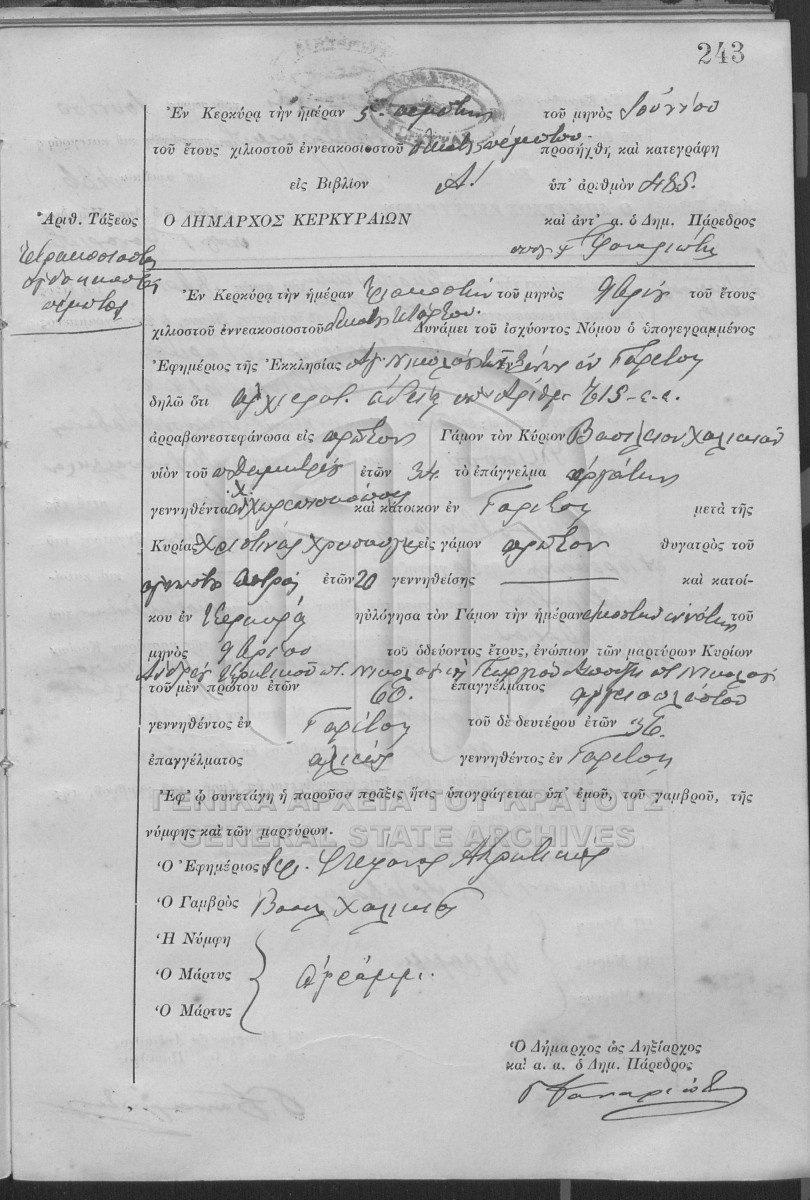 243
Ἐν Κερκύρᾳ τὴν ἡμέραν 5 πέμπτην τοῦ μηνὸς Ἰουνίου
τοῦ ἔτους χιλιοστοῦ ἐννεακοσιοστοῦ δεκάτου πέμπτου προσήχθη καὶ κατεγράφη
εἰς Βιβλίον Α! ὑπ' ἀριθμὸν 485.
Ἀριθ. Τάξεως Ὁ ΔΗΜΑΡΧΟΣ ΚΕΡΚΥΡΑΙΩΝ καὶ ἀντ' α. ὁ Δημ. Πάρεδρος
Τετρακοσιοστὸς
ὀγδοηκοστὸς
πέμπτος
Ἐν Κερκύρᾳ τὴν ἡμέραν τριακοστὴν τοῦ μηνὸς 9βρίου τοῦ ἔτους
χιλιοστοῦ ἐννεακοσιοστοῦ δεκάτου τετάρτου. Δυνάμει τοῦ ἰσχύοντος Νόμου ὁ ὑπογεγραμμένος
Ἐφημέριος τῆς Ἐκκλησίας Ἁγ. Νικολάου τῶν Ξένων ἐν Γαρίτσῃ
δηλῶ ὅτι ἀρχιερατ. ἀδείᾳ ὑπ' ἀριθμ.
ἀρραβωνεστεφάνωσα εἰς πρῶτον Γάμον τὸν Κύριον Βασίλειον Χαλικιᾶν
υἱὸν τοῦ ἐτῶν 34 τὸ ἐπάγγελμα ἐργάτην
γεννηθέντα καὶ κάτοικον ἐν Γαρίτσῃ μετὰ τῆς
Κυρίας Χριστίνας εἰς γάμον πρῶτον θυγατρὸς τοῦ
ἀγνώστου πατρὸς ἐτῶν 20 γεννηθείσης καὶ κατοί-
κου ἐν Κερκύρᾳ ηὐλόγησα τὸν Γάμον τὴν ἡμέραν εἰκοστὴν ἐννάτην τοῦ
μηνὸς 9βρίου τοῦ ὁδεύοντος ἔτους, ἐνώπιον τῶν μαρτύρων Κυρίων
Ἀνδρέου Νικολάου Γεωργίου Νικολάου
τοῦ μὲν πρώτου ἐτῶν 60. ἐπαγγέλματος ἀγγειοπλάστου
γεννηθέντος ἐν Γαρίτσῃ τοῦ δὲ δευτέρου ἐτῶν 36.
ἐπαγγέλματος ἁλιεὺς γεννηθέντος ἐν Γαρίτσῃ
Ἐφ' ᾧ συνετάγη ἡ παροῦσα πρᾶξις ἥτις ὑπογράφεται ὑπ' ἐμοῦ, τοῦ γαμβροῦ, τῆς
νύμφης καὶ τῶν μαρτύρων.
ΓΕΝΙΚΑ ΑΡΧΕΙΑ ΤΟΥ ΚΡΑΤΟΥΣ
GENERAL STATE ARCHIVES
Ὁ Ἐφημέριος Ἱερ. Στέφανος
Ὁ Γαμβρὸς Βασίλ Χαλικιᾶς
Ἡ Νύμφη
Ὁ Μάρτυς ἀγράμμ.
Ὁ Μάρτυς
Ὁ Δήμαρχος ὡς Ληξίαρχος
καὶ α. α. ὁ Δημ. Πάρεδρος